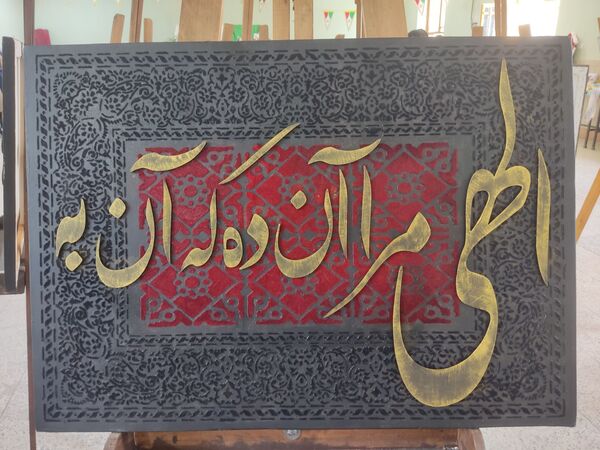 الهی مرا آن ده که آن به